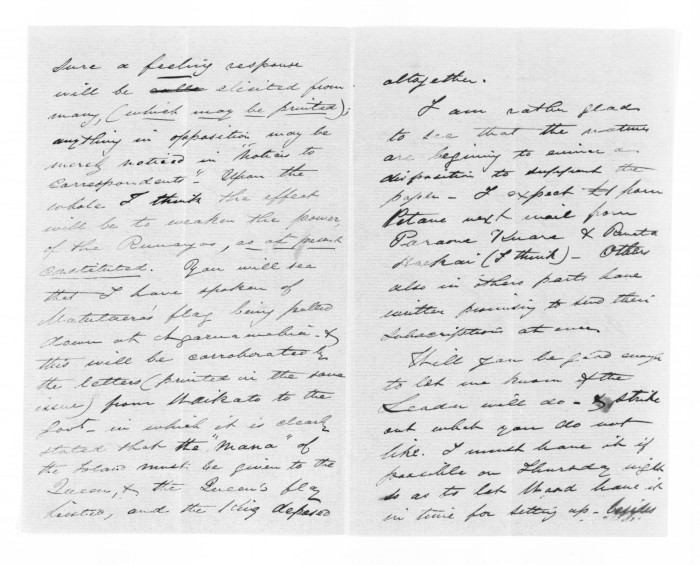 sure a feeling response
will be elicited from
many, (which may be printed);
anything in opposition may be
merely noticed in "Notices to
Correspondents". Upon the
whole I think the effect
will be to weaken the power,
of the Runangas, as at present
constituted. You will see
that I have spoken of
Matutaera's flag being pulled
down at Ngaruawahia - &
this will be corroborated by
the letters (printed in the same
issue) from Waikato to the
Govt - in which it is clearly
stated that the "Mana" of
the Island must be given to the
Queen, & the Queen's flag
hoisted, and the King deposed
altogether.
I am rather glad
to see that the natives
are begining to evince a
disposition to support the
paper - I expect from
Petane next mail from
Paraone & Renata
(I think) - Others
also in others parts have
written promising to send their
subscriptions at once
Will you be good enough
to let me know if the
Leader will do - & strike
out what you do not
like. I must have it if
possible on Thursday night
so as to let Wood have it
in time for setting up -